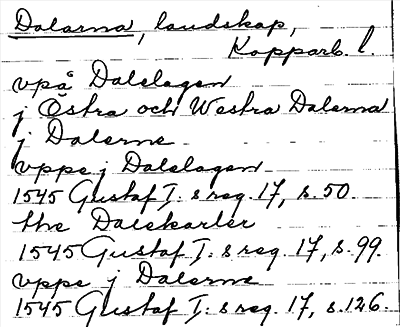 Dalarna, landskap,
Kopparb. l.
vpå Dalelagen
j Östra och Westra Dalarna
j Dalerne
vppe j Dalelagen
1545 Gustaf I:s reg. 17, s. 50.
the Dalekarler
1545 Gustaf I:s reg. 17, s. 99.
vppe j Dalerne
1545 Gustaf I:s reg. 17, s. 126.